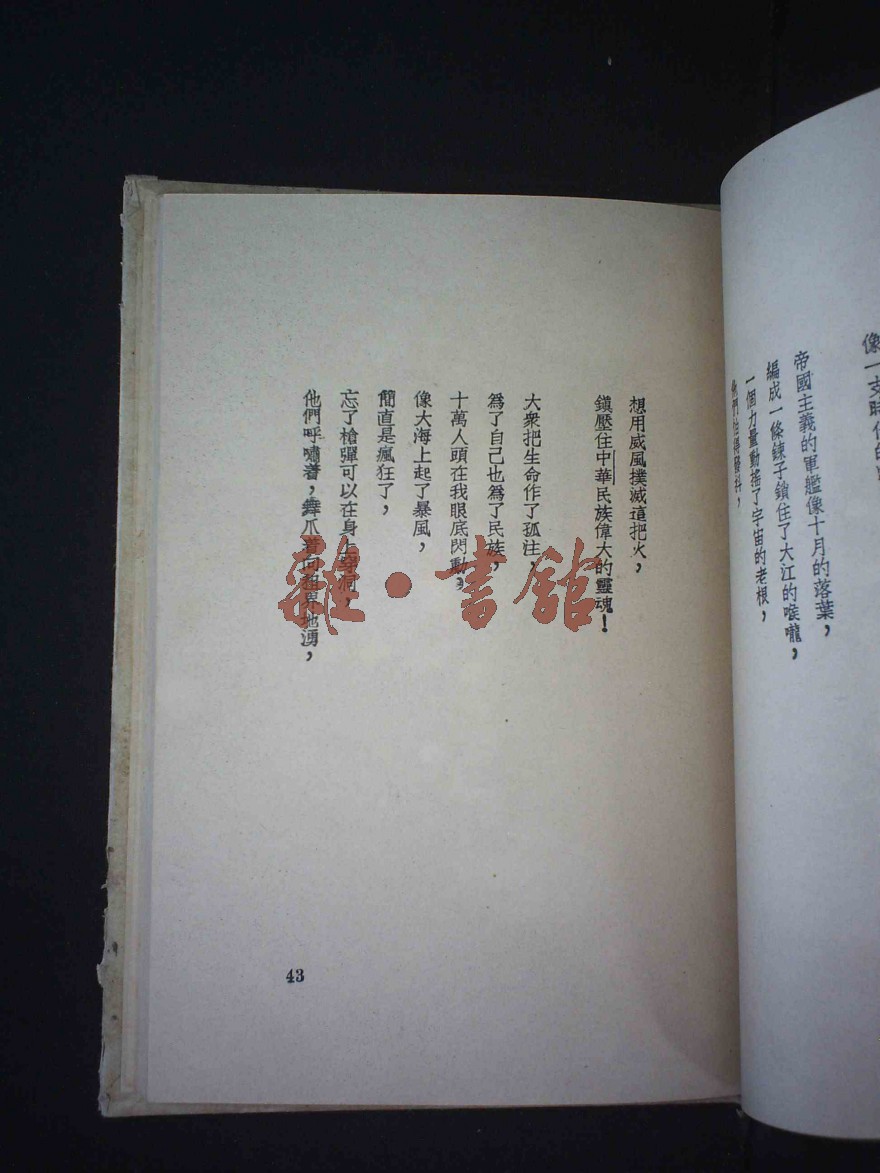 像一支時代的
帝國主義的軍艦像十月的落葉，
編成一條鍊子鎖住了大江的喉嚨，
一個力量動搖了宇宙的老根，
他們怕得發抖，
想用威風撲滅這把火，
鎮壓住中華民族偉大的靈魂！
大衆把生命作了孤注，
為了自己也為了民族，
十萬人頭在我眼底閃動，
像大海上起了暴風，
簡直是瘋狂了，
忘了槍彈可以在身上穿洞，
他們呼嘯着，舞爪着向租界地湧，
43
雜·書館